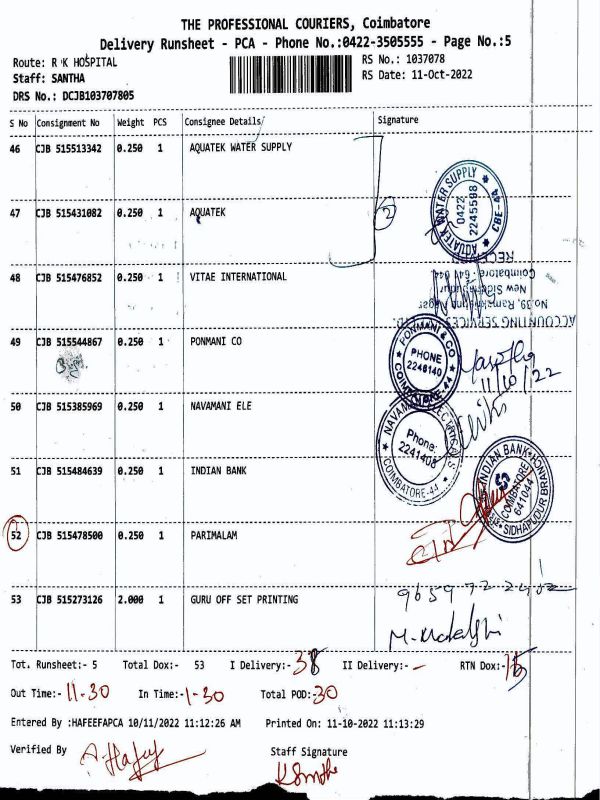 THE PROFESSIONAL COURIERS, Coimbatore
Delivery Runsheet - PCA - Phone No.:0422-3505555 - Page No.:5
Route: R K HOSPITAL
RS No.: 1037078
Staff: SANTHA
RS Date: 11-Oct-2022
DRS No.: DCJB103707805
S No Consignment No Weight PCS Consignee Details Signature
46 CJB 515513342 0.250 1 AQUATEK WATER SUPPLY
AQUATEK WATER SUPPLY
0422
2245598
CBE-44
47 CJB 515431082 0.250 1 AQUATEK
2
48 CJB 515476852 0.250 1 VITAE INTERNATIONAL
ACCOUNTING SERVICES
No.39, Ramakrishna Nagar
New Siddhapudur
Coimbatore - 641 044
49 CJB 515544867 0.250 1 PONMANI CO
PONMANI & CO
PHONE
2246140
COIMBATORE-44
11/10/22
50 CJB 515385969 0.250 1 NAVAMANI ELE
NAVAMANI ELECTRICALS
Phone:
2241408
COIMBATORE-44
51 CJB 515484639 0.250 1 INDIAN BANK
INDIAN BANK
COIMBATORE
641044
SIDHAPUDUR BRANCH
52 CJB 515478500 0.250 1 PARIMALAM
53 CJB 515273126 2.000 1 GURU OFF SET PRINTING
9659722402
Tot. Runsheet:- 5 Total Dox:- 53 I Delivery:- 38 II Delivery:- - RTN Dox:- 15
Out Time:- 11-30 In Time:- 1-30 Total POD:- 30
Entered By :HAFEEFAPCA 10/11/2022 11:12:26 AM Printed On: 11-10-2022 11:13:29
Verified By
Staff Signature